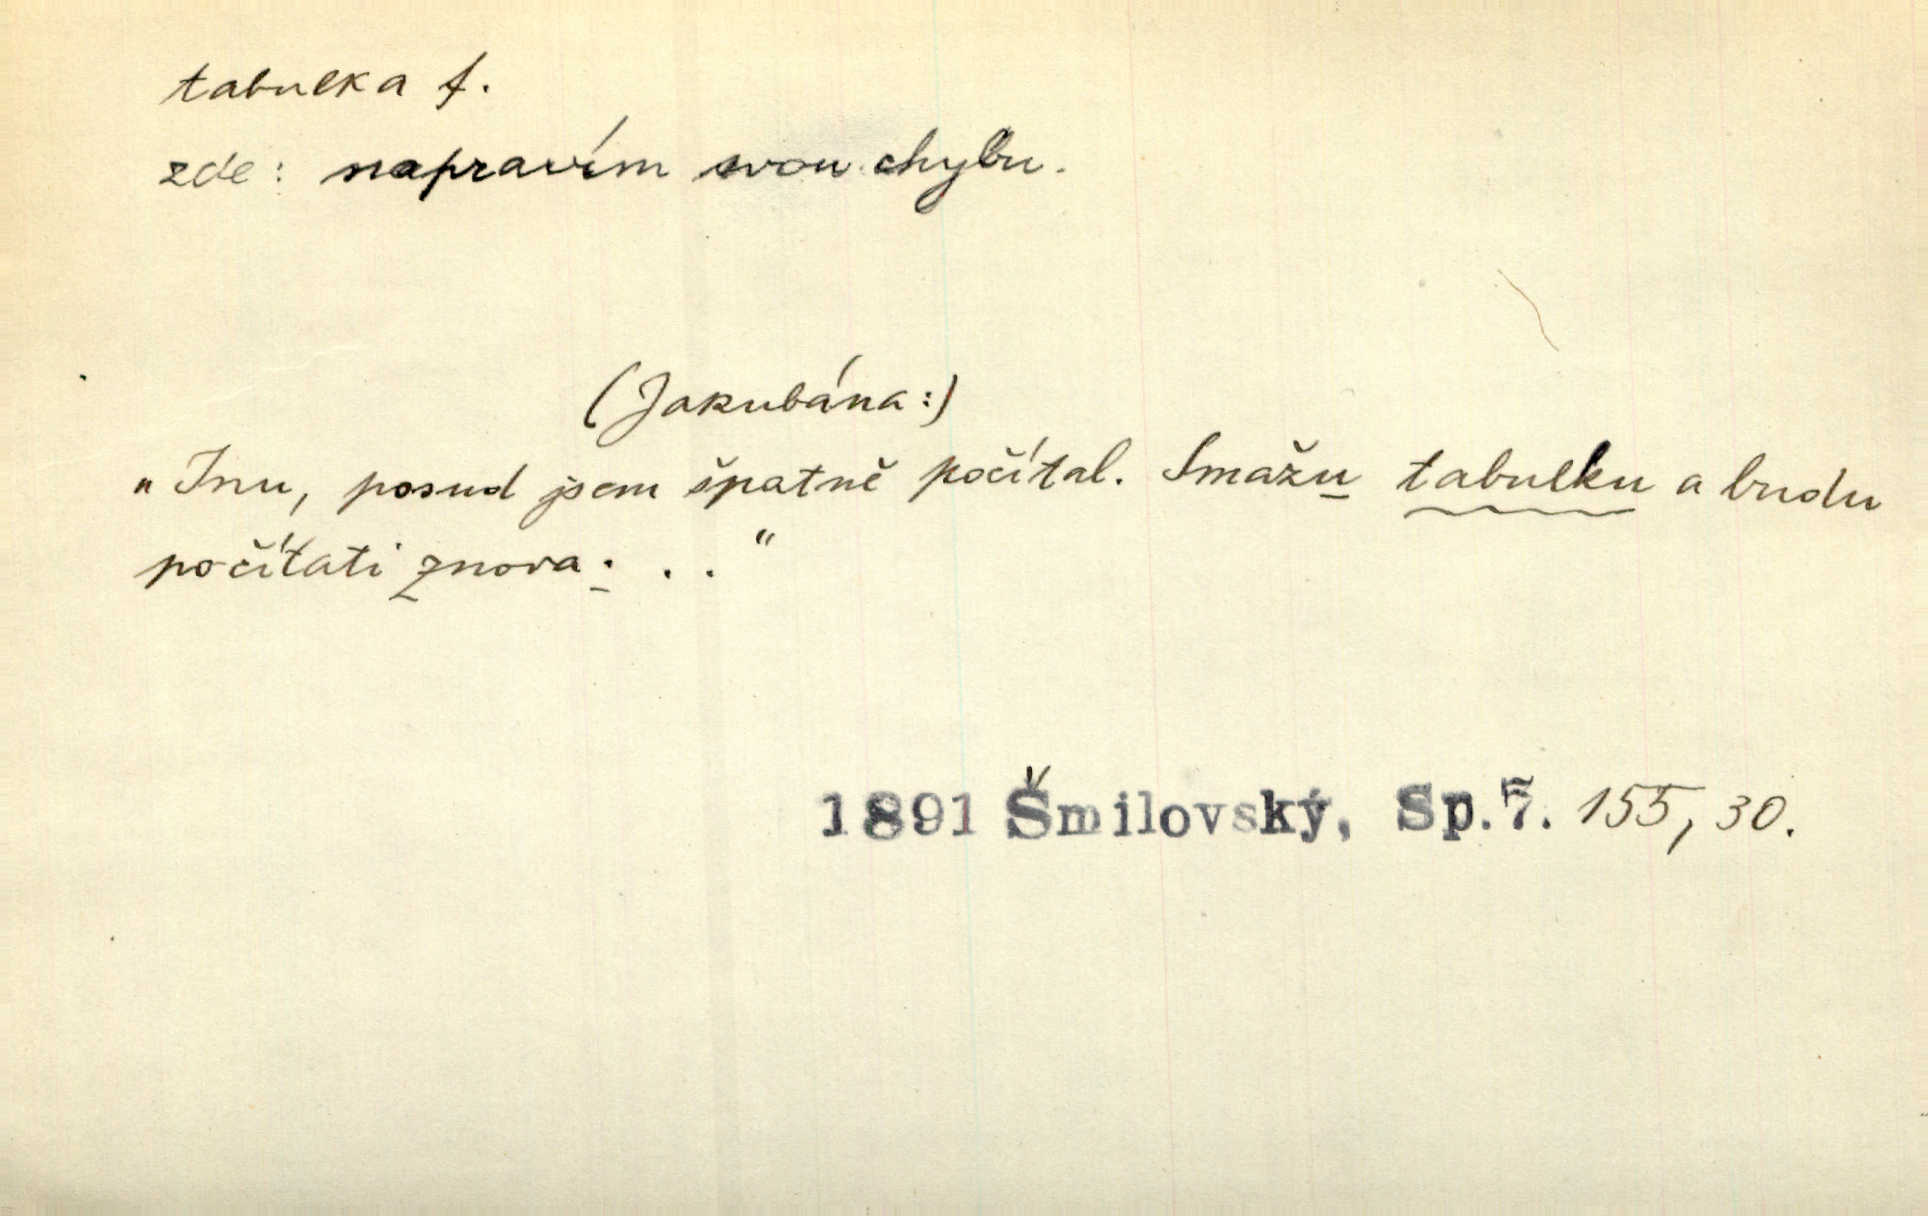 tabulka f.
zde: napravím svou chybu.
(Jakubána:)
„Inu, posud jsem špatně počítal. Smažu tabulku a budu
počítati znova. . . “
1891 Šmilovský, Sp.7. 155, 30.